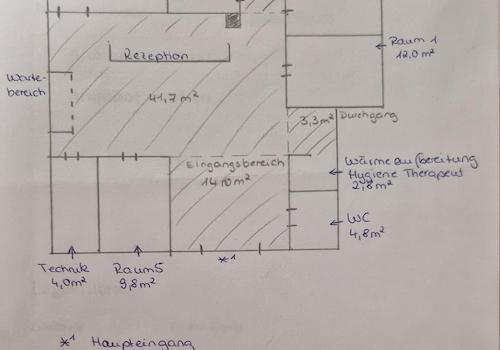 Rezeption
Raum 1
12,0 m²
Warte-
bereich
41,7 m²
3,3 m²
Durchgang
Eingangsbereich
14,0 m²
Wärmeaufbereitung
Hygiene Therapeut
2,8 m²
WC
4,8 m²
Technik
4,0 m²
Raum 5
9,8 m²
*1
*1 Haupteingang